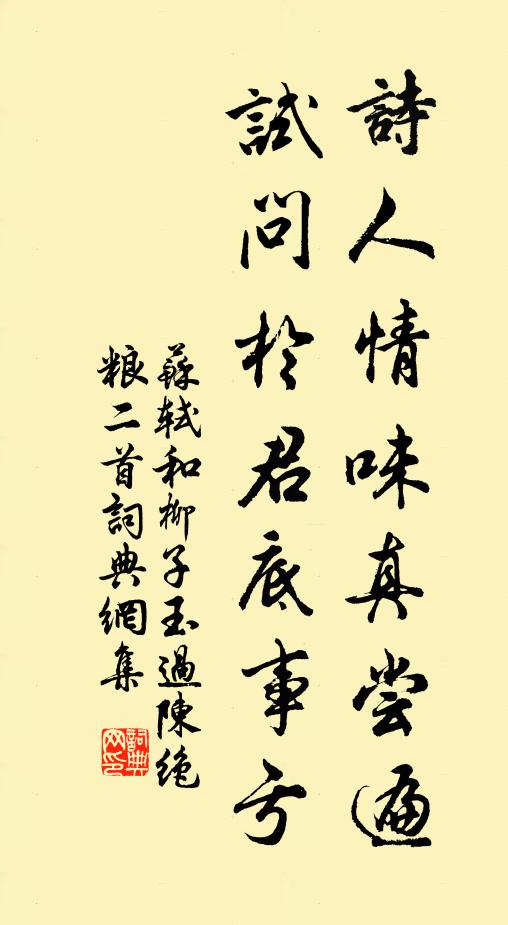 詩人情味真尝遍
試問於君底事亏
蘇軾和柳子玉過陳絶
粮二首詞典網集
詞典
网印